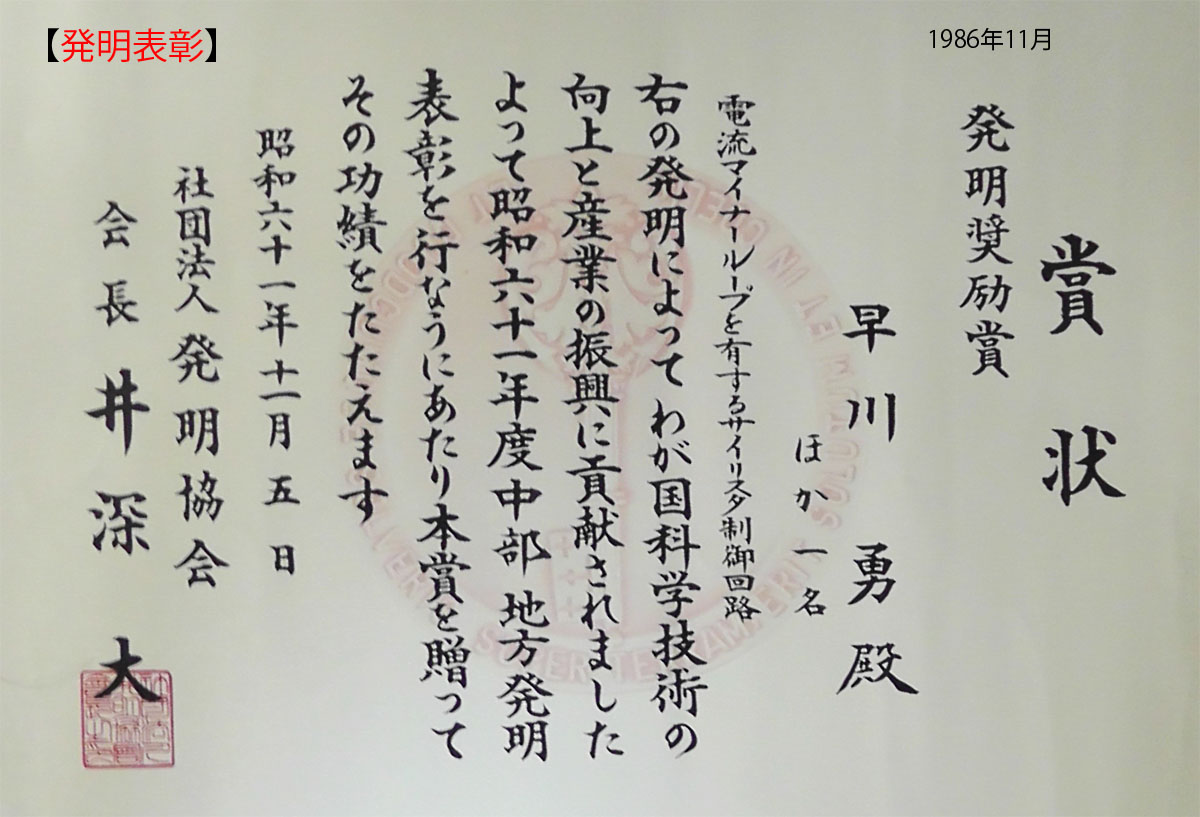 【発明表彰】
1986年11月
賞状
発明奨励賞
早川勇殿
ほか一名
電流マイナーループを有するサイリスタ制御回路
右の発明によってわが国科学技術の
向上と産業の振興に貢献されました
よって昭和六十一年度中部地方発明
表彰を行なうにあたり本賞を贈って
その功績をたたえます
昭和六十一年十一月五日
社団法人発明協会
会長井深大